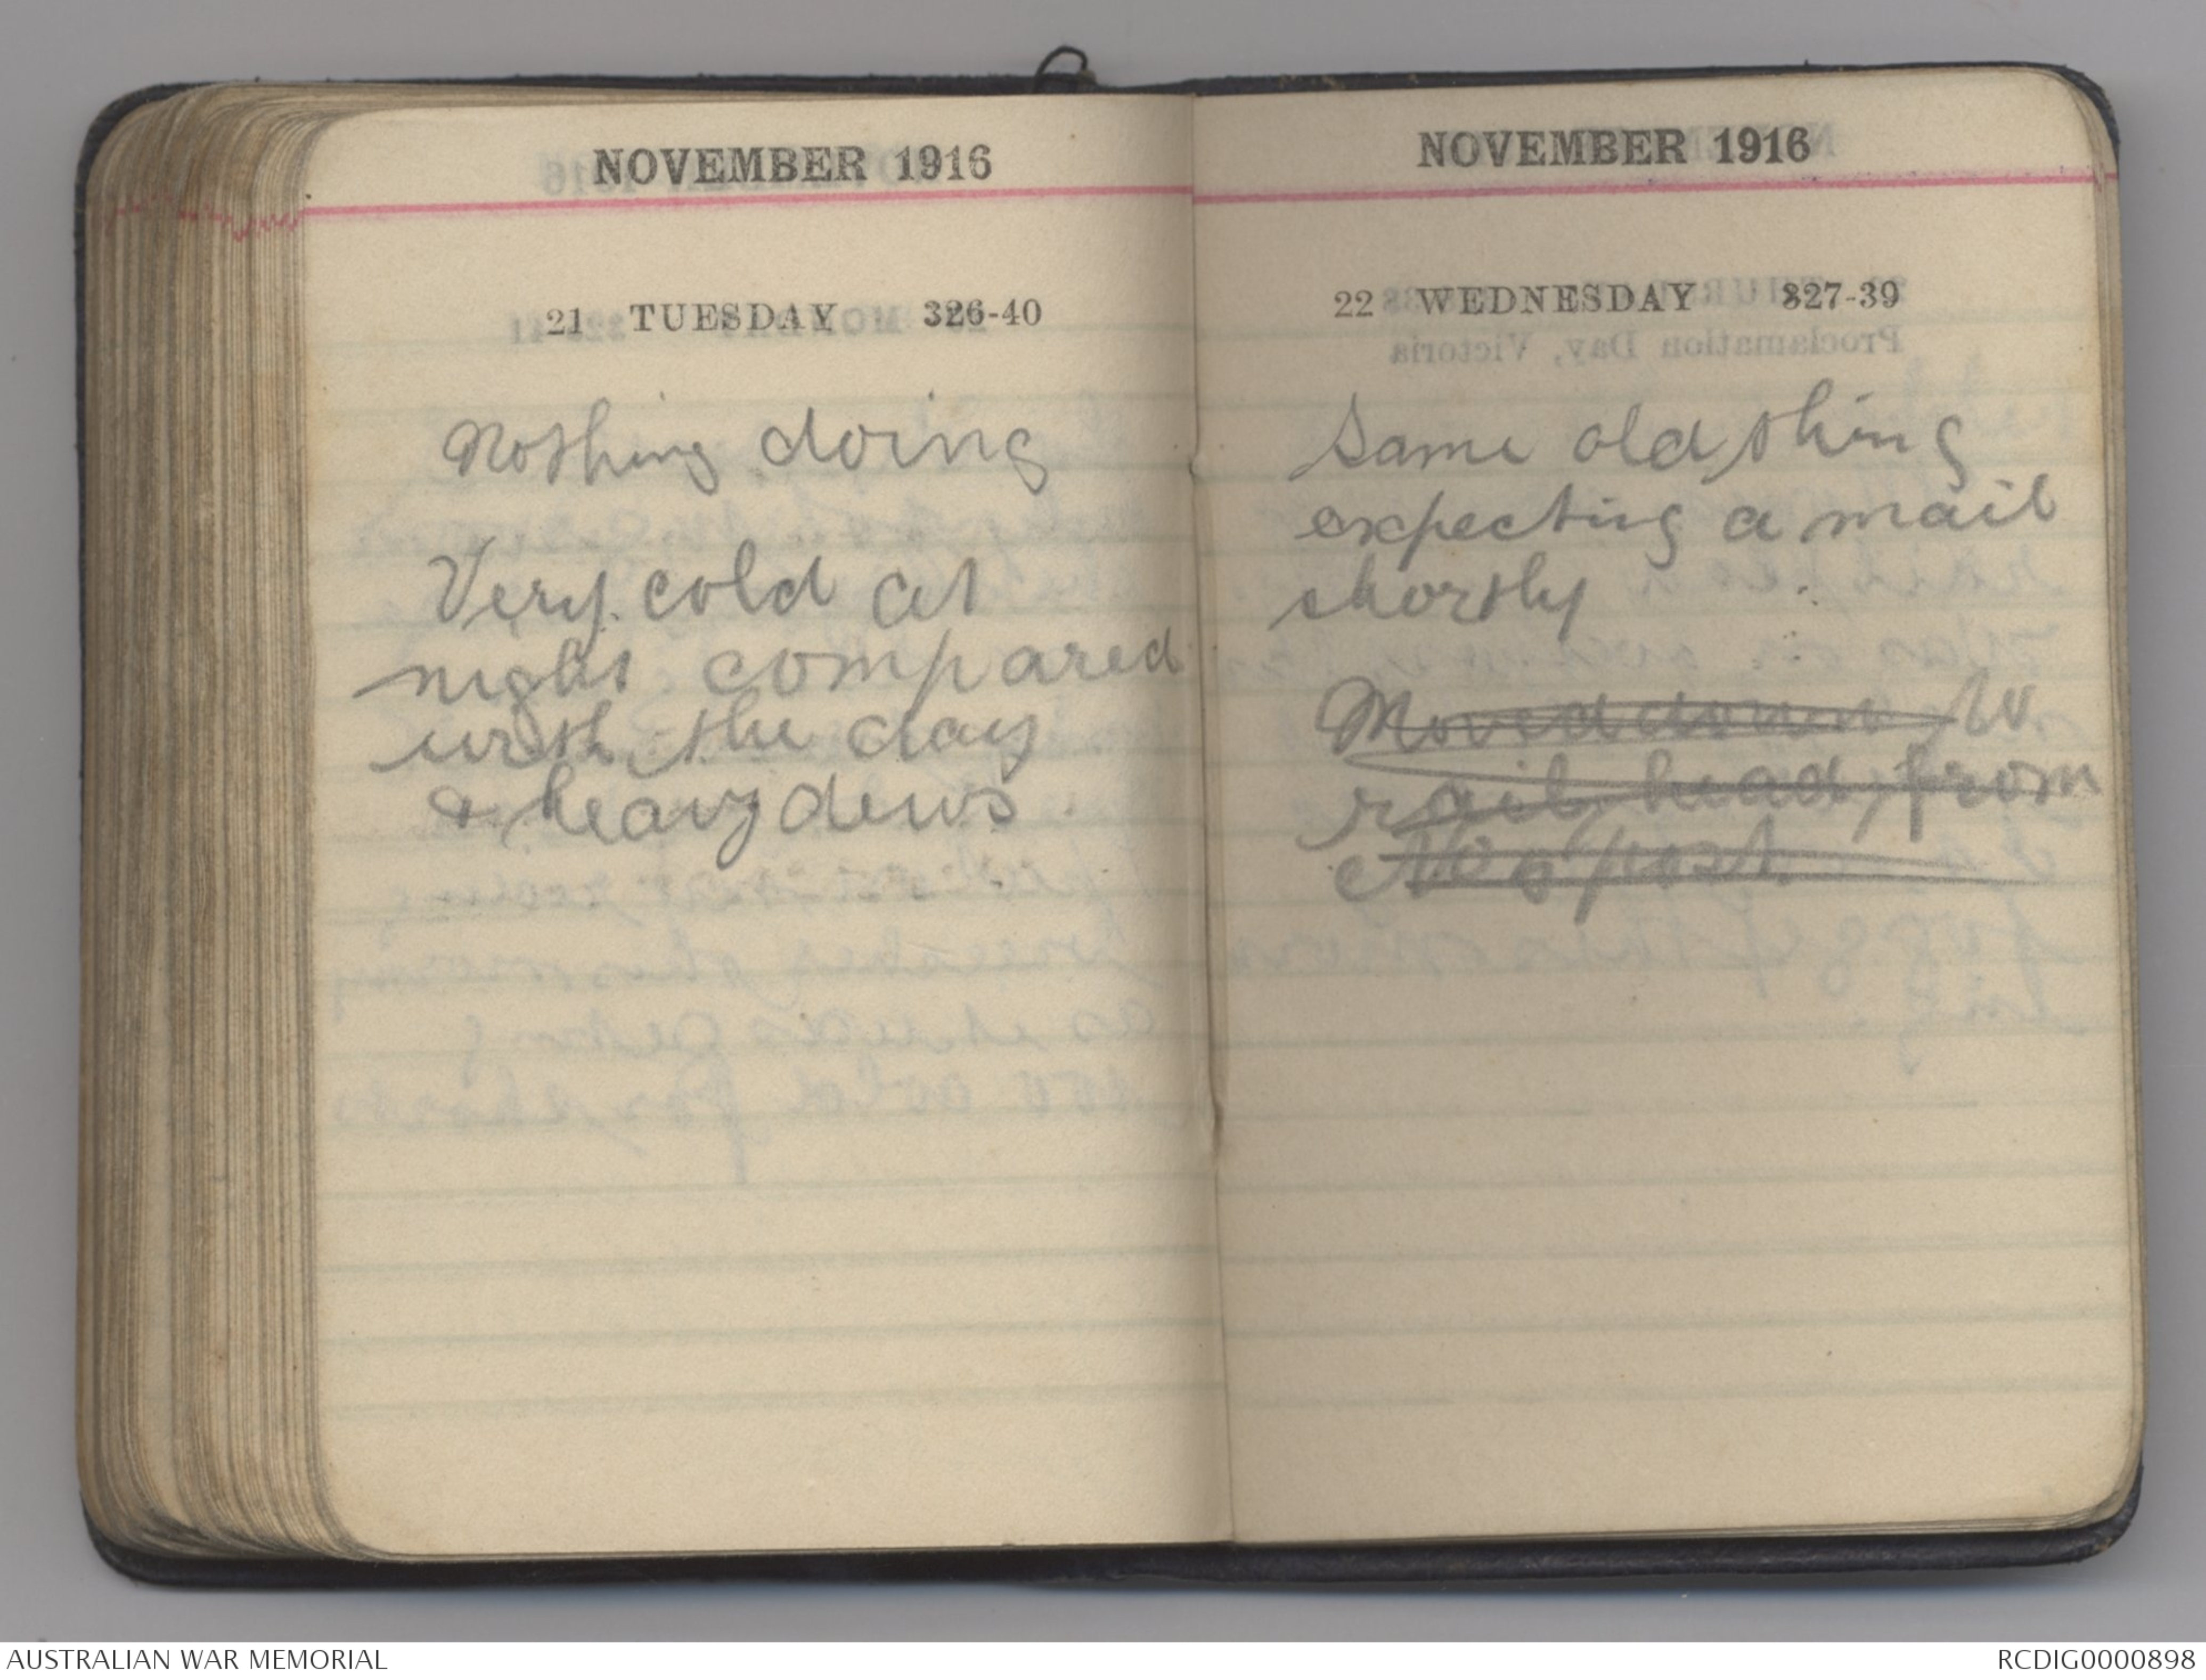 NOVEMBER 1916
21 TUESDAY 326-40
Nothing doing
Very cold at
night compared
with the day
& heavy dews
NOVEMBER 1916
22 WEDNESDAY 327-39
Same old thing
expecting a mail
shortly
Moved down to
rail head, from
No 6 post
AUSTRALIAN WAR MEMORIAL
RCDIG0000898